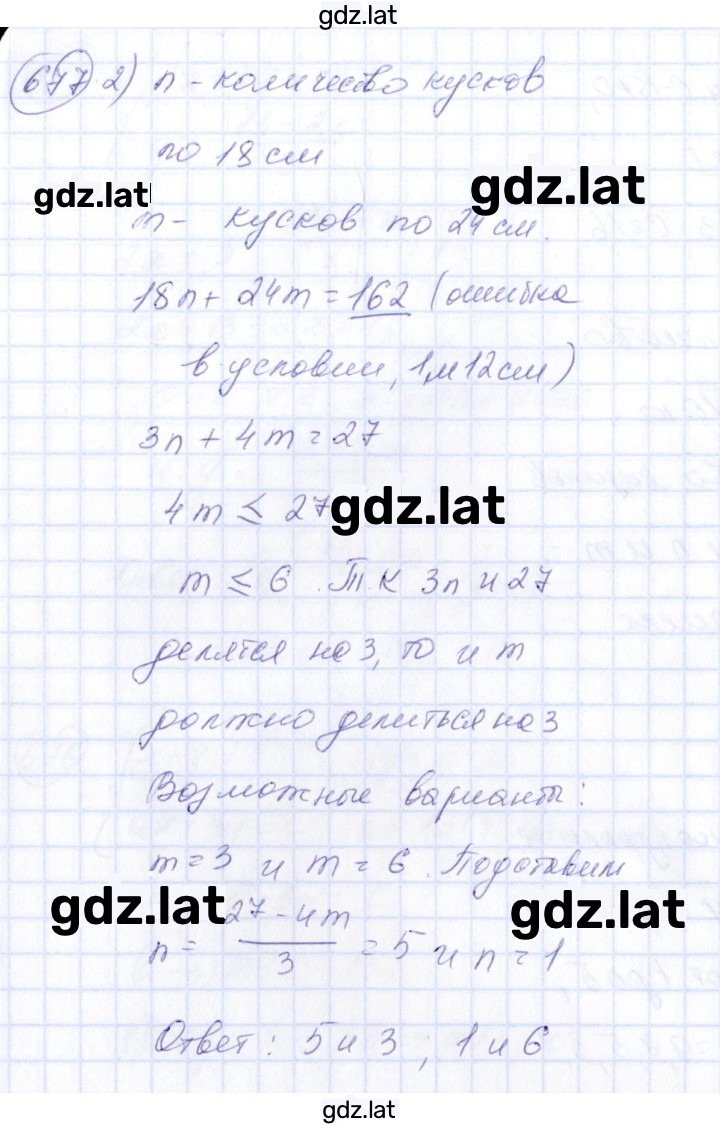 gdz.lat
677 2) n - количество кусков
по 18 см
gdz.lat
gdz.lat
m - кусков по 24 см.
18n + 24m = 162 (ошибка
в условии, 1м12см)
3n + 4m = 27
4m ≤ 27
gdz.lat
m ≤ 6. Т.К 3n и 27
делятся на 3, то и m
должно делиться на 3
Возможные варианты:
m = 3 и m = 6. Подставим
gdz.lat
gdz.lat
n = (27 - 4m)/3 = 5 и n = 1
Ответ: 5 и 3; 1 и 6
gdz.lat